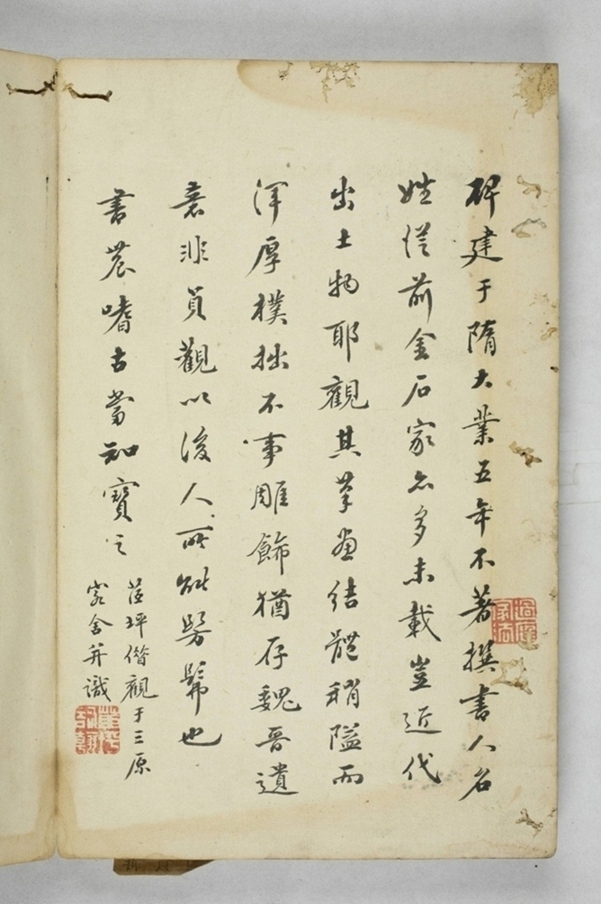 碑建于隋大業五年不著撰書人名
姓從前金石家亦多未載豈近代
出土物耶觀其筆畫結體稍隘而
渾厚樸拙不事雕飾猶存魏晉遺
意非貞觀以後人所能髣髴也
書農嗜古當知寶之
范坪借觀于三原
客舍并識